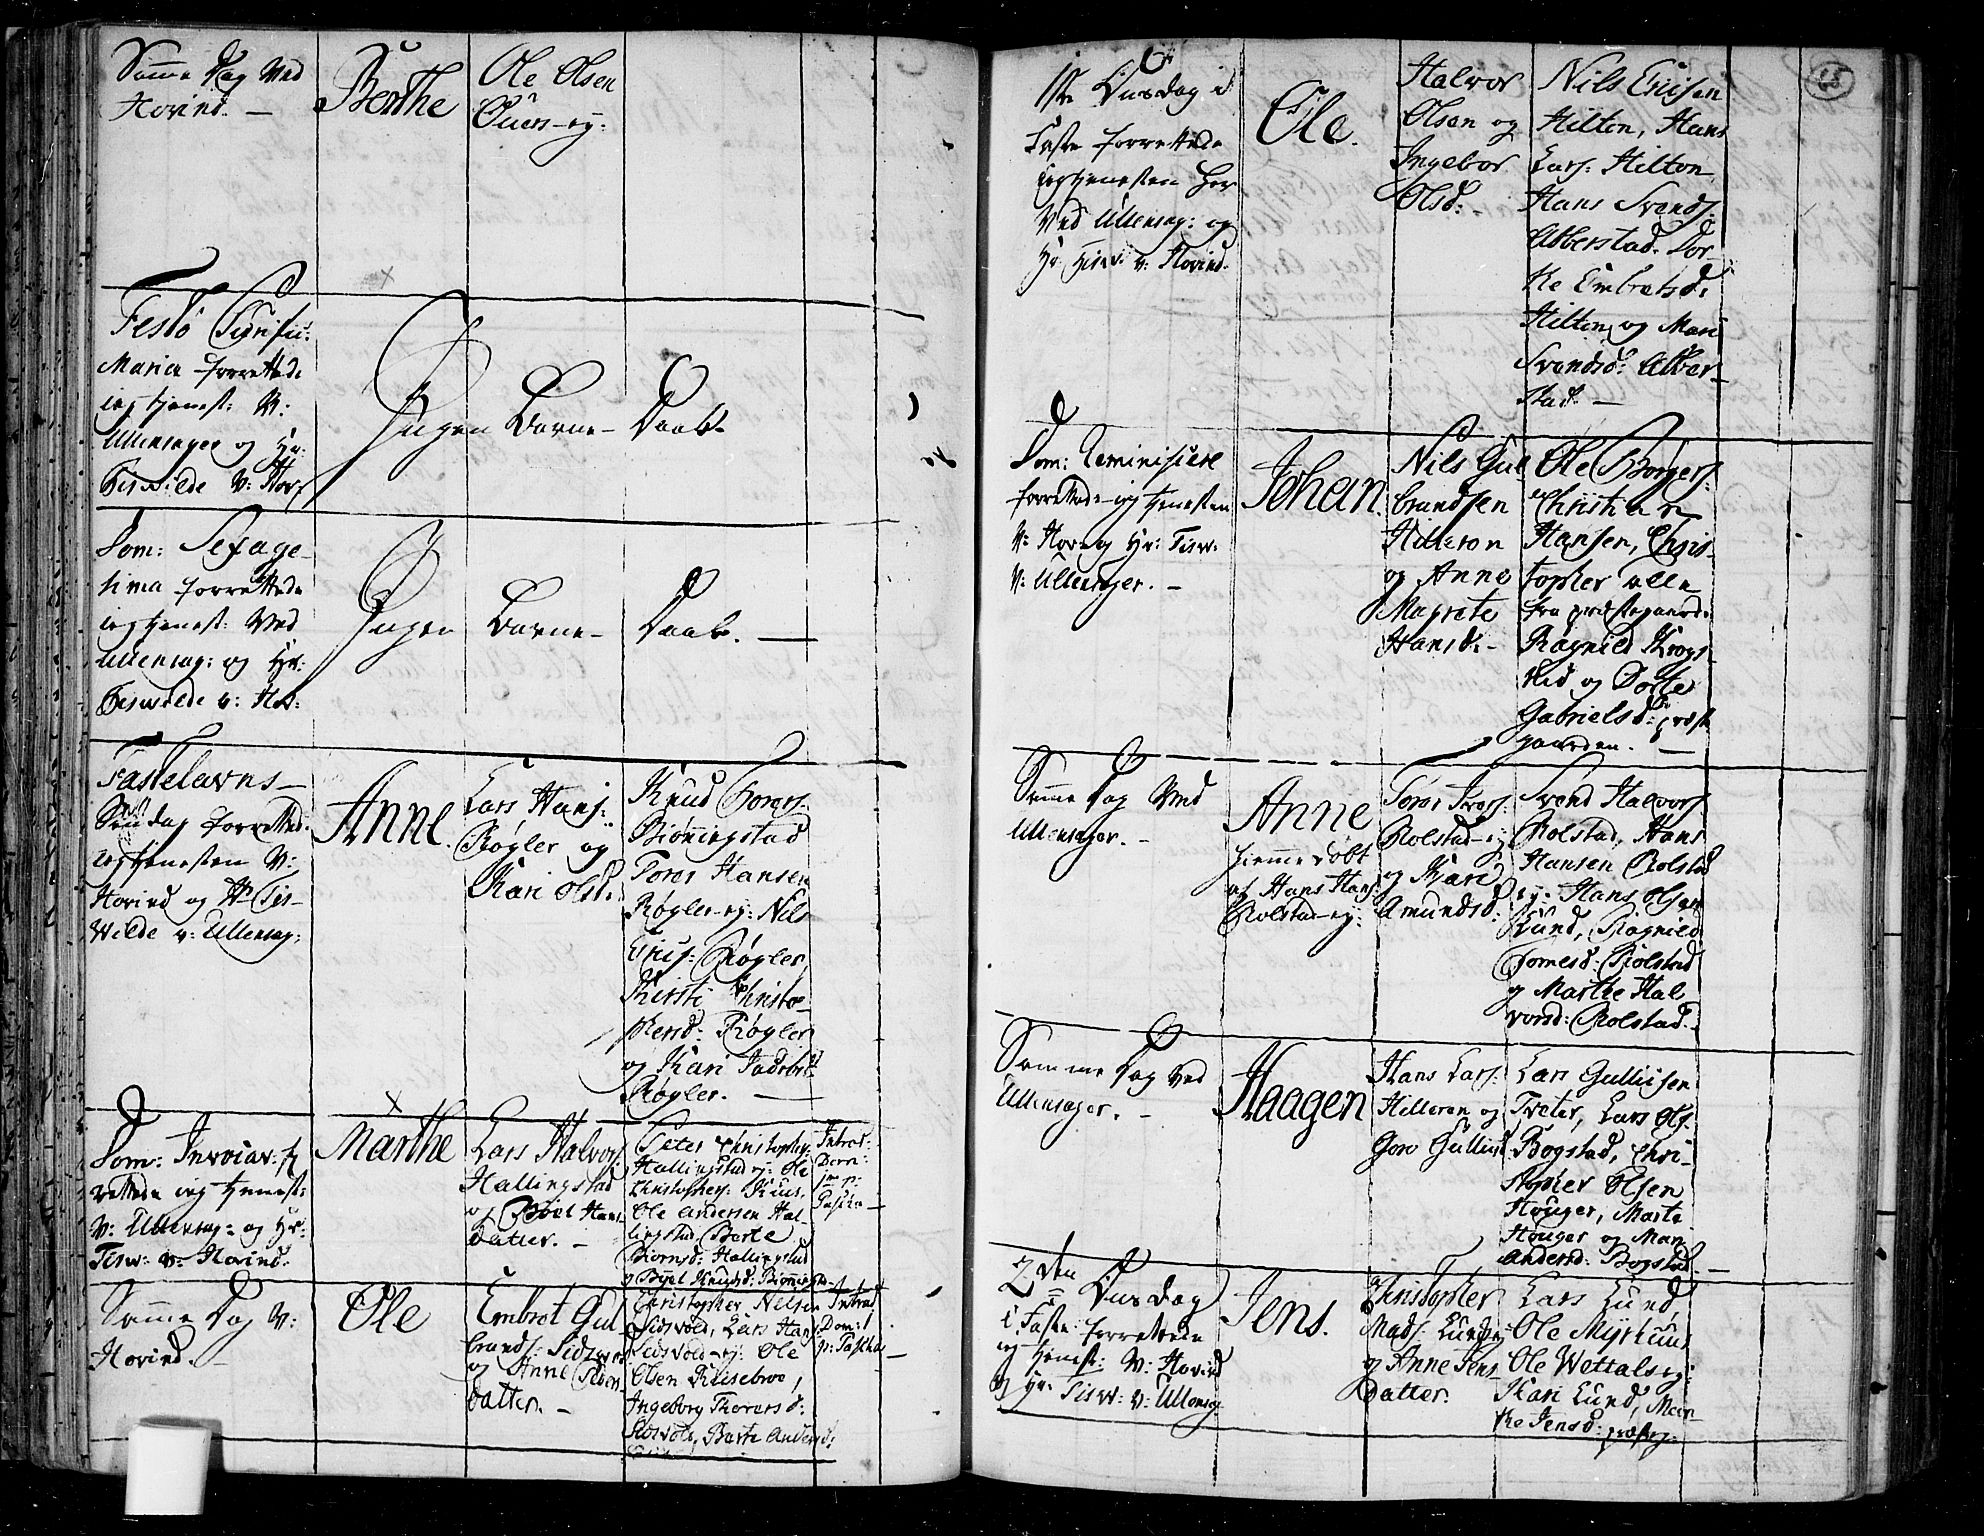 Samme Dag Ved
Hovind. —
Berthe
Ole Olsen
ej:
Festo
Mariæ forrettede
jeg tjenest: V:
Ullensager og Hr:
Tisvilde V: Hov:
Ingen Barne- Daab.
Dom: Sexage-
sima forrettede
jeg tjenest: Ved
Ullensag: og Hr:
Tisvilde v: Hov:
Ingen Barne- Daab. —
Fastelavns-
Søndag forrettede
jeg tjenesten V:
Hovind og Hr Tis-
Wilde v: Ullensag:
Anne.
Lars Hans:
Røgler og
Kari Olsd:
Knud
Biørningstad
Toror Hansen
Røgler ej: Nils
Erics: Røgler
Kirsti Christo-
phersd: Røgler
og Kari
Røgler. —
Dom: Invocav: for-
rettede jeg tjenest:
V: Ullensag: og Hr:
Tisw: v: Hovind.
Marthe
Lars Halvors:
Hallingstad
og Boel Hans
datter. —
Peter Christophers:
Hallingstad ej: Ole
Christophers:
Ole Andersen Hal-
lingstad, Berte
Biørnsd: Hallingstad
og Boel Knudsd:
Introd:
Dom:
1me p:
Pascha —
Samme Dag V:
Hovind. —
Ole
Embret Gul
brands:
og Anne
datter. —
Christopher Nelsen
Lars Hans:
ej: Ole
Olsen
Ingeborg Thorersd:
Berte Andersd:
Introd:
Dom: 1
p: Pascha —
65
1ste Onsdag i
Faste forrettede
jeg tjenesten her
Ved Ullensag: og
Hr: Tisw: v: Hovind.
Ole.
Halvor
Olsen og
Ingebor
Olsd:
Nils Ericsen
Hilton, Hans
Lars: Hilton
Hans Svends:
Alberstad. Dor-
the Embretsd:
Hilton og Mari
Svendsd: Alber-
stad. —
Dom: Reminiscere
forrettede jeg tjenesten
V: Hov: og Hr: Tisw:
v: Ullensager. —
Johan.
Nils Gul
brandsen
Hilleron
og Anne
Magrete
Hansd: —
Ole Borgers:
Christian
Hansen, Chris-
topher alle
fra præstegaard:
Ragnild Krogs-
og Dorte
Gabrielsd: præste
gaarden. —
Samme Dag Ved
Ullensager. —
Anne
hiemme døbt
af Hans Hans:
Rolstad ej:
Toror Ivers:
Rolstad ej
og Kari
Amundsd:
Svend Halvors:
Rolstad, Hans
Hansen Rolstad
ej: Hans Olsen
Lund, Ragnild
Tomesd: Rolstad
og Marthe Hal
vorsd: Rolstad. —
Samme Dag Ved
Ullensager. —
Haagen
Hans Lars:
Hilleren og
Goro Gulliksd
Lars Gullicsen
Tveter, Lars Ols:
Bogstad, Chri-
stopher Olsen
Houger, Marte
Houger og Mari
Andersd: Bogstad. —
2den Onsdag
i Faste forrettede
jeg tjenest: V: Hovind
og Hr: Tisw: v: Ullensag:
Jens.
Christopher
Mads: Lund ej:
og Anne Jens
datter.
Lars Lund,
Ole Myrhuus
Ole Wettals ej:
Kari Lund, Mar-
the Jensd: